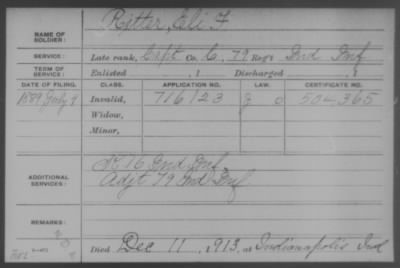 Ritter, Eli F
NAME OF SOLDIER:
SERVICE: Late rank, Capt Co. C, 79 Reg't Ind Inf
TERM OF SERVICE: Enlisted , 1 Discharged , 1
DATE OF FILING. CLASS. APPLICATION NO. LAW. CERTIFICATE NO.
1889 July 9 Invalid, 716123 504,365
Widow,
Minor,
ADDITIONAL SERVICES:
K 16 Ind Inf
Adjt 79 Ind Inf
REMARKS:
Died Dec 11, 1913, at Indianapolis Ind